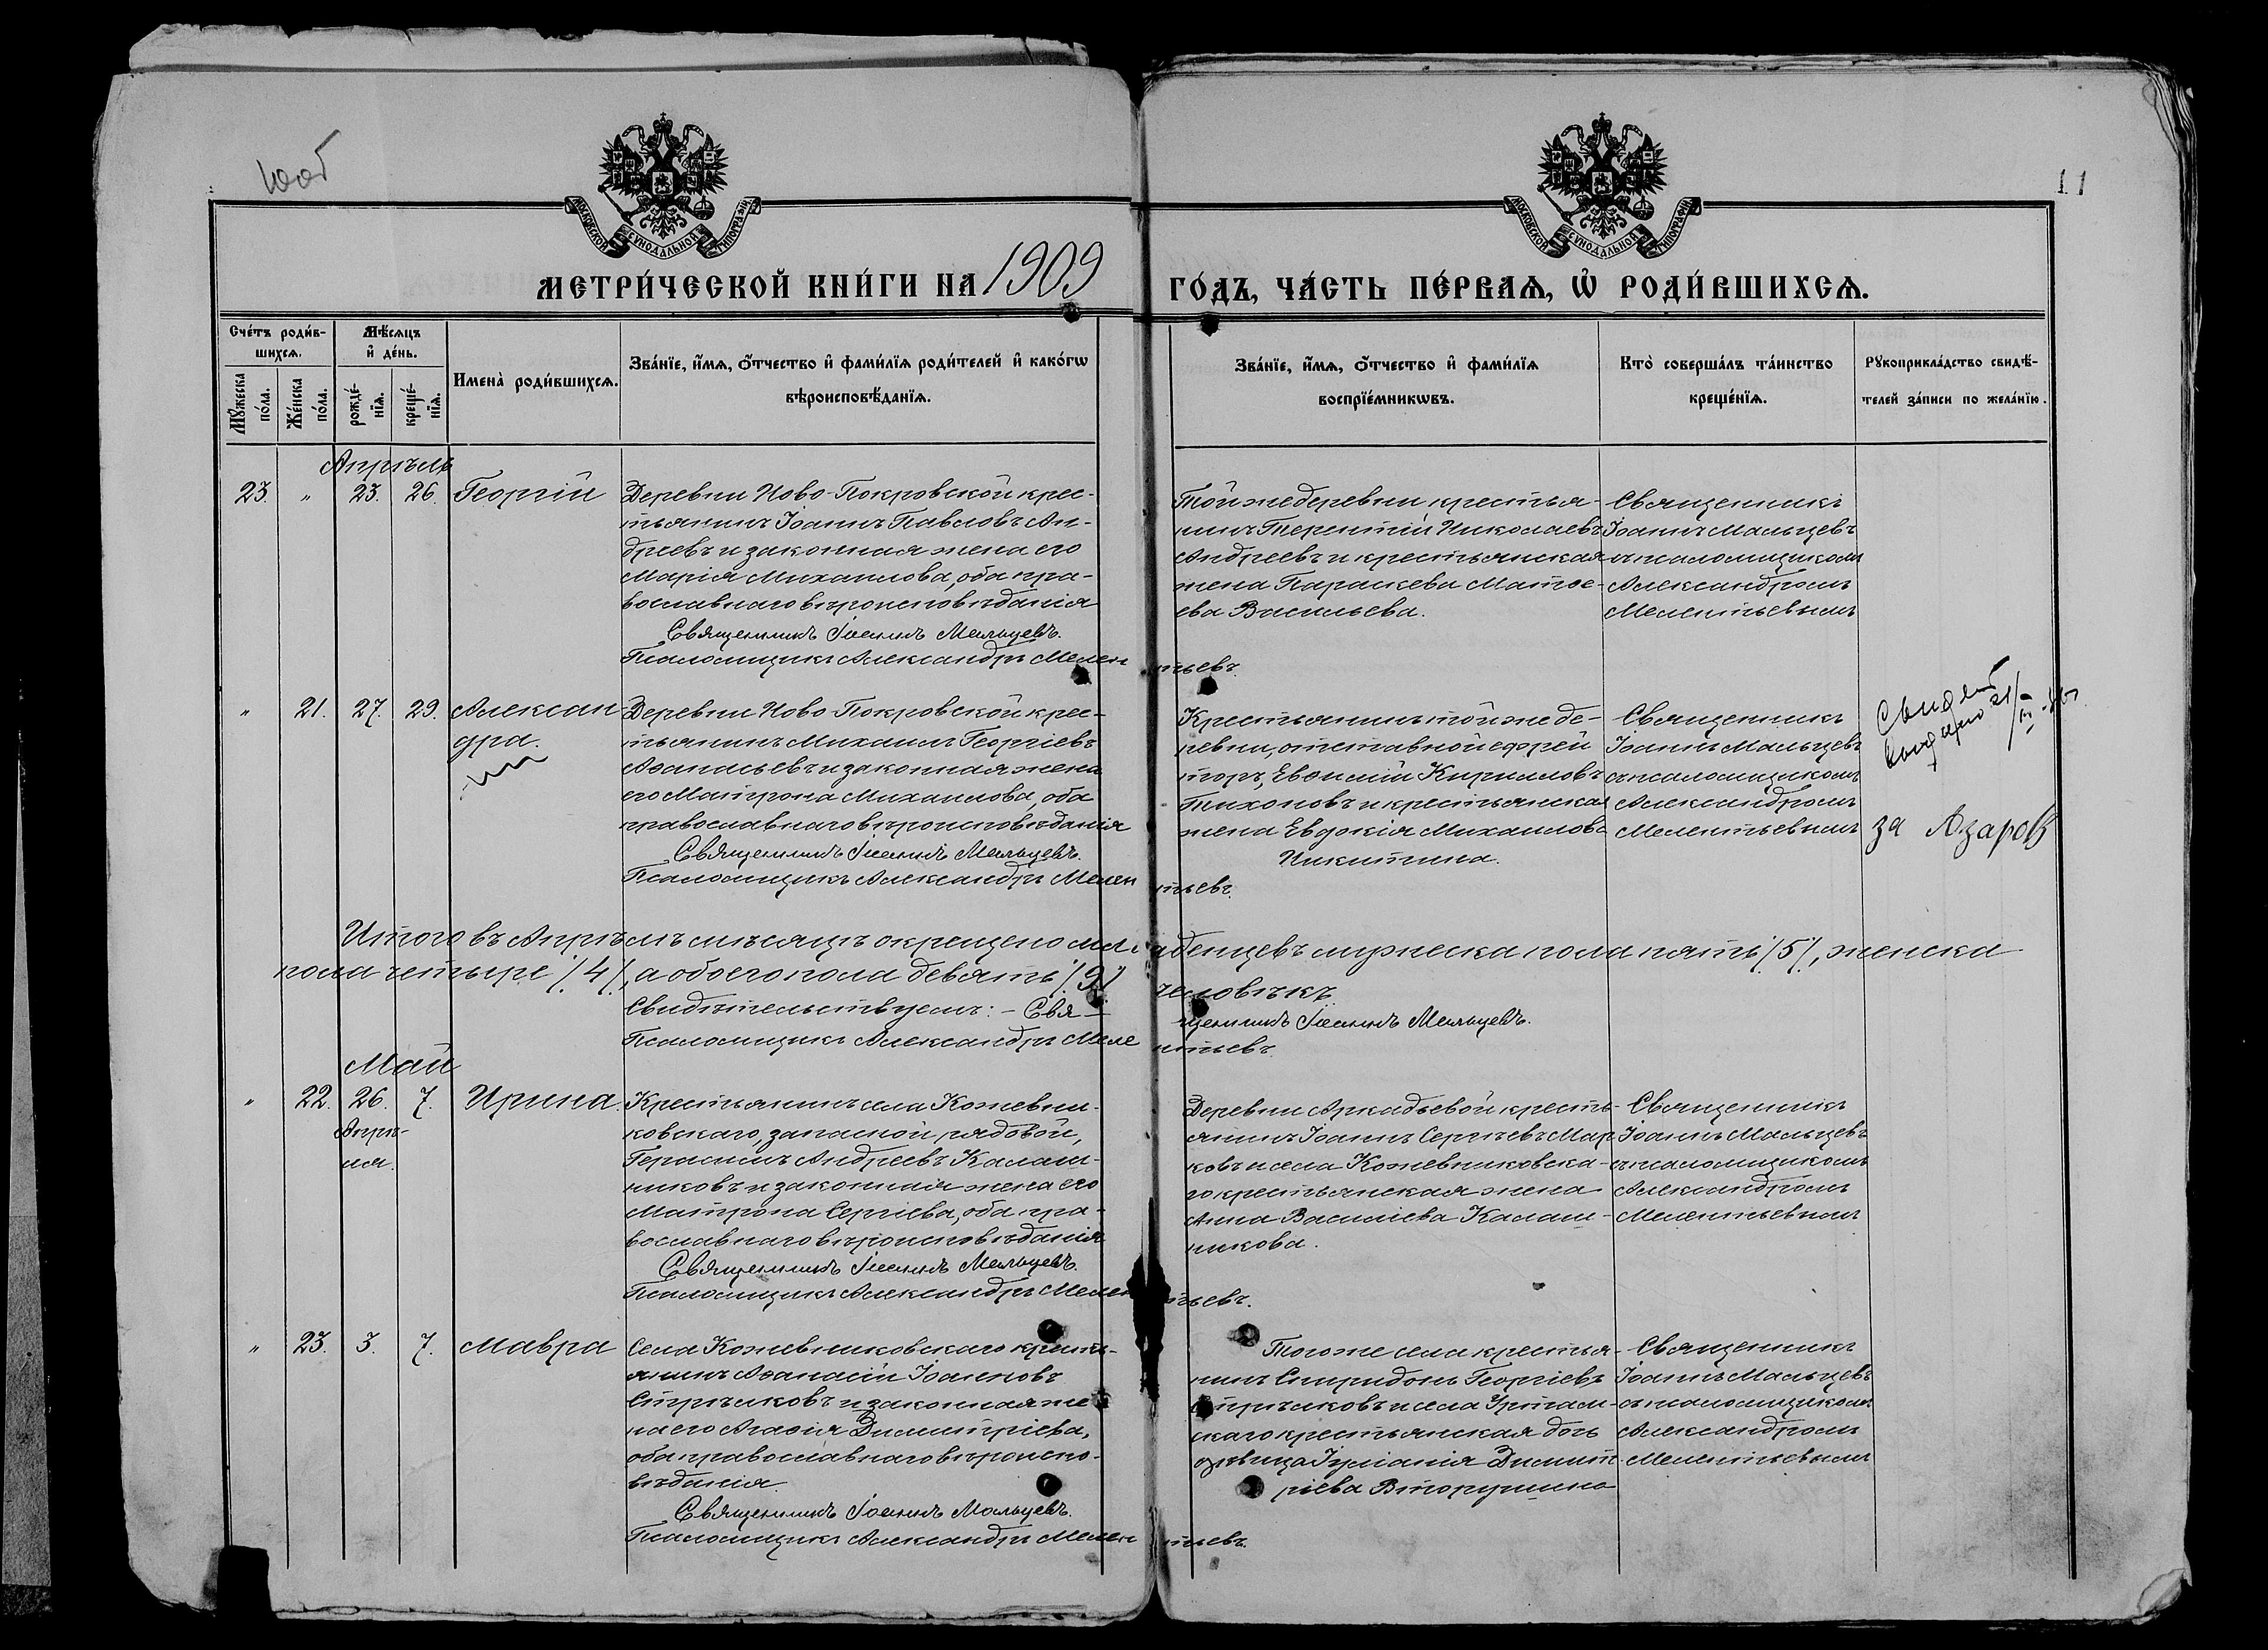 11
МОСКОВСКОЙ СѴНОДАЛЬНОЙ ТИПОГРАФІИ
МОСКОВСКОЙ СѴНОДАЛЬНОЙ ТИПОГРАФІИ
МЕТРИ́ЧЕСКОЙ КНИ́ГИ НА 1909 ГО́ДЪ, ЧА́СТЬ ПЕ́РВАѦ, Ѡ҆ РОДИ́ВШИХСѦ.
Сче́тъ роди́в-
шихсѧ.
Мѣ́сѧцъ
и҆ де́нь.
Мꙋ́жеска
по́ла.
Же́нска
по́ла.
рожде́-
нїѧ.
креще́-
нїѧ.
Имена̀ роди́вшихсѧ.
Зва́нїе, и҆́мѧ, ѻ҆́тчество и҆ фами́лїѧ роди́телей и҆ како́гѡ
вѣроисповѣ́данїѧ.
Зва́нїе, и҆́мѧ, ѻ҆́тчество и҆ фами́лїѧ
воспрїе́мникѡвъ.
Кто̀ соверша́лъ та́инство
креще́нїѧ.
Рꙋкоприкла́дство свидѣ́-
телей за́писи по жела́нїю.
Апрѣль
23. " 23. 26. Георгій
Деревни Ново-Покровской крес-
тьянинъ Іоаннъ Павловъ Ан-
дреевъ и законная жена его
Марія Михаилова, оба пра-
вославнаго вѣроисповѣданія
Священникъ Іоаннъ Мальцевъ.
Псаломщикъ Александръ Мелентьевъ.
Той же деревни крестья-
нинъ Терентій Николаевъ
Андреевъ и крестьянская
жена Параскева Матѳе-
ева Васильева.
Священникъ
Іоаннъ Мальцевъ
съ псаломщикомъ
Александромъ
Мелентьевымъ
" 21. 27. 29. Алексан
дра.
Деревни Ново-Покровской крес-
тьянинъ Михаилъ Георгіевъ
Аѳанасьевъ и законная жена
его Матрона Михаилова, оба
православнаго вѣроисповѣданія
Священникъ Іоаннъ Мальцевъ.
Псаломщикъ Александръ Мелентьевъ.
Крестьянинъ той же де-
ревни, отставной ефрей
торъ, Евѳимій Кирилловъ
Тихоновъ и крестьянская
жена Евдокія Михаилова
Никитина.
Священникъ
Іоаннъ Мальцевъ
съ псаломщикомъ
Александромъ
Мелентьевымъ
за Азаров
Итого въ Апрѣлѣ мѣсяцѣ окрещено младенцевъ мужеска пола пять /5/, женска
пола четыре /4/, а обоего пола девять /9/ человѣкъ.
Свидѣтельствуемъ: – Священникъ Іоаннъ Мальцевъ.
Псаломщикъ Александръ Мелентьевъ
Май
" 22. 26. 7. Ирина.
Апрѣ-
ля.
Крестьянинъ села Кожевни-
ковскаго, запасной рядовой,
Герасимъ Андреевъ Калаш-
никовъ и законная жена его
Матрона Сергіева, оба пра-
вославнаго вѣроисповѣданія
Священникъ Іоаннъ Мальцевъ.
Псаломщикъ Александръ Мелентьевъ.
Деревни Аркадьевой кресть-
янинъ Іоаннъ Сергѣевъ Мар
ковъ и села Кожевниковска-
го крестьянская жена
Анна Василіева Калаш-
никова.
Священникъ
Іоаннъ Мальцевъ
съ псаломщикомъ
Александромъ
Мелентьевымъ
" 23. 3. 7. Мавра
Села Кожевниковскаго кресть-
янинъ Аѳанасій Іоанновъ
Стрѣлковъ и законная же
на его Агаѳія Димитріева,
оба православнаго вѣроиспо-
вѣданія.
Священникъ Іоаннъ Мальцевъ.
Псаломщикъ Александръ Мелентьевъ.
Того же села крестья-
нинъ Спиридонъ Георгіевъ
Стрѣлковъ и села Уртам-
скаго крестьянская дочь
дѣвица Іуліанія Димит
ріева Вторушина
Священникъ
Іоаннъ Мальцевъ
съ псаломщикомъ
Александромъ
Мелентьевымъ